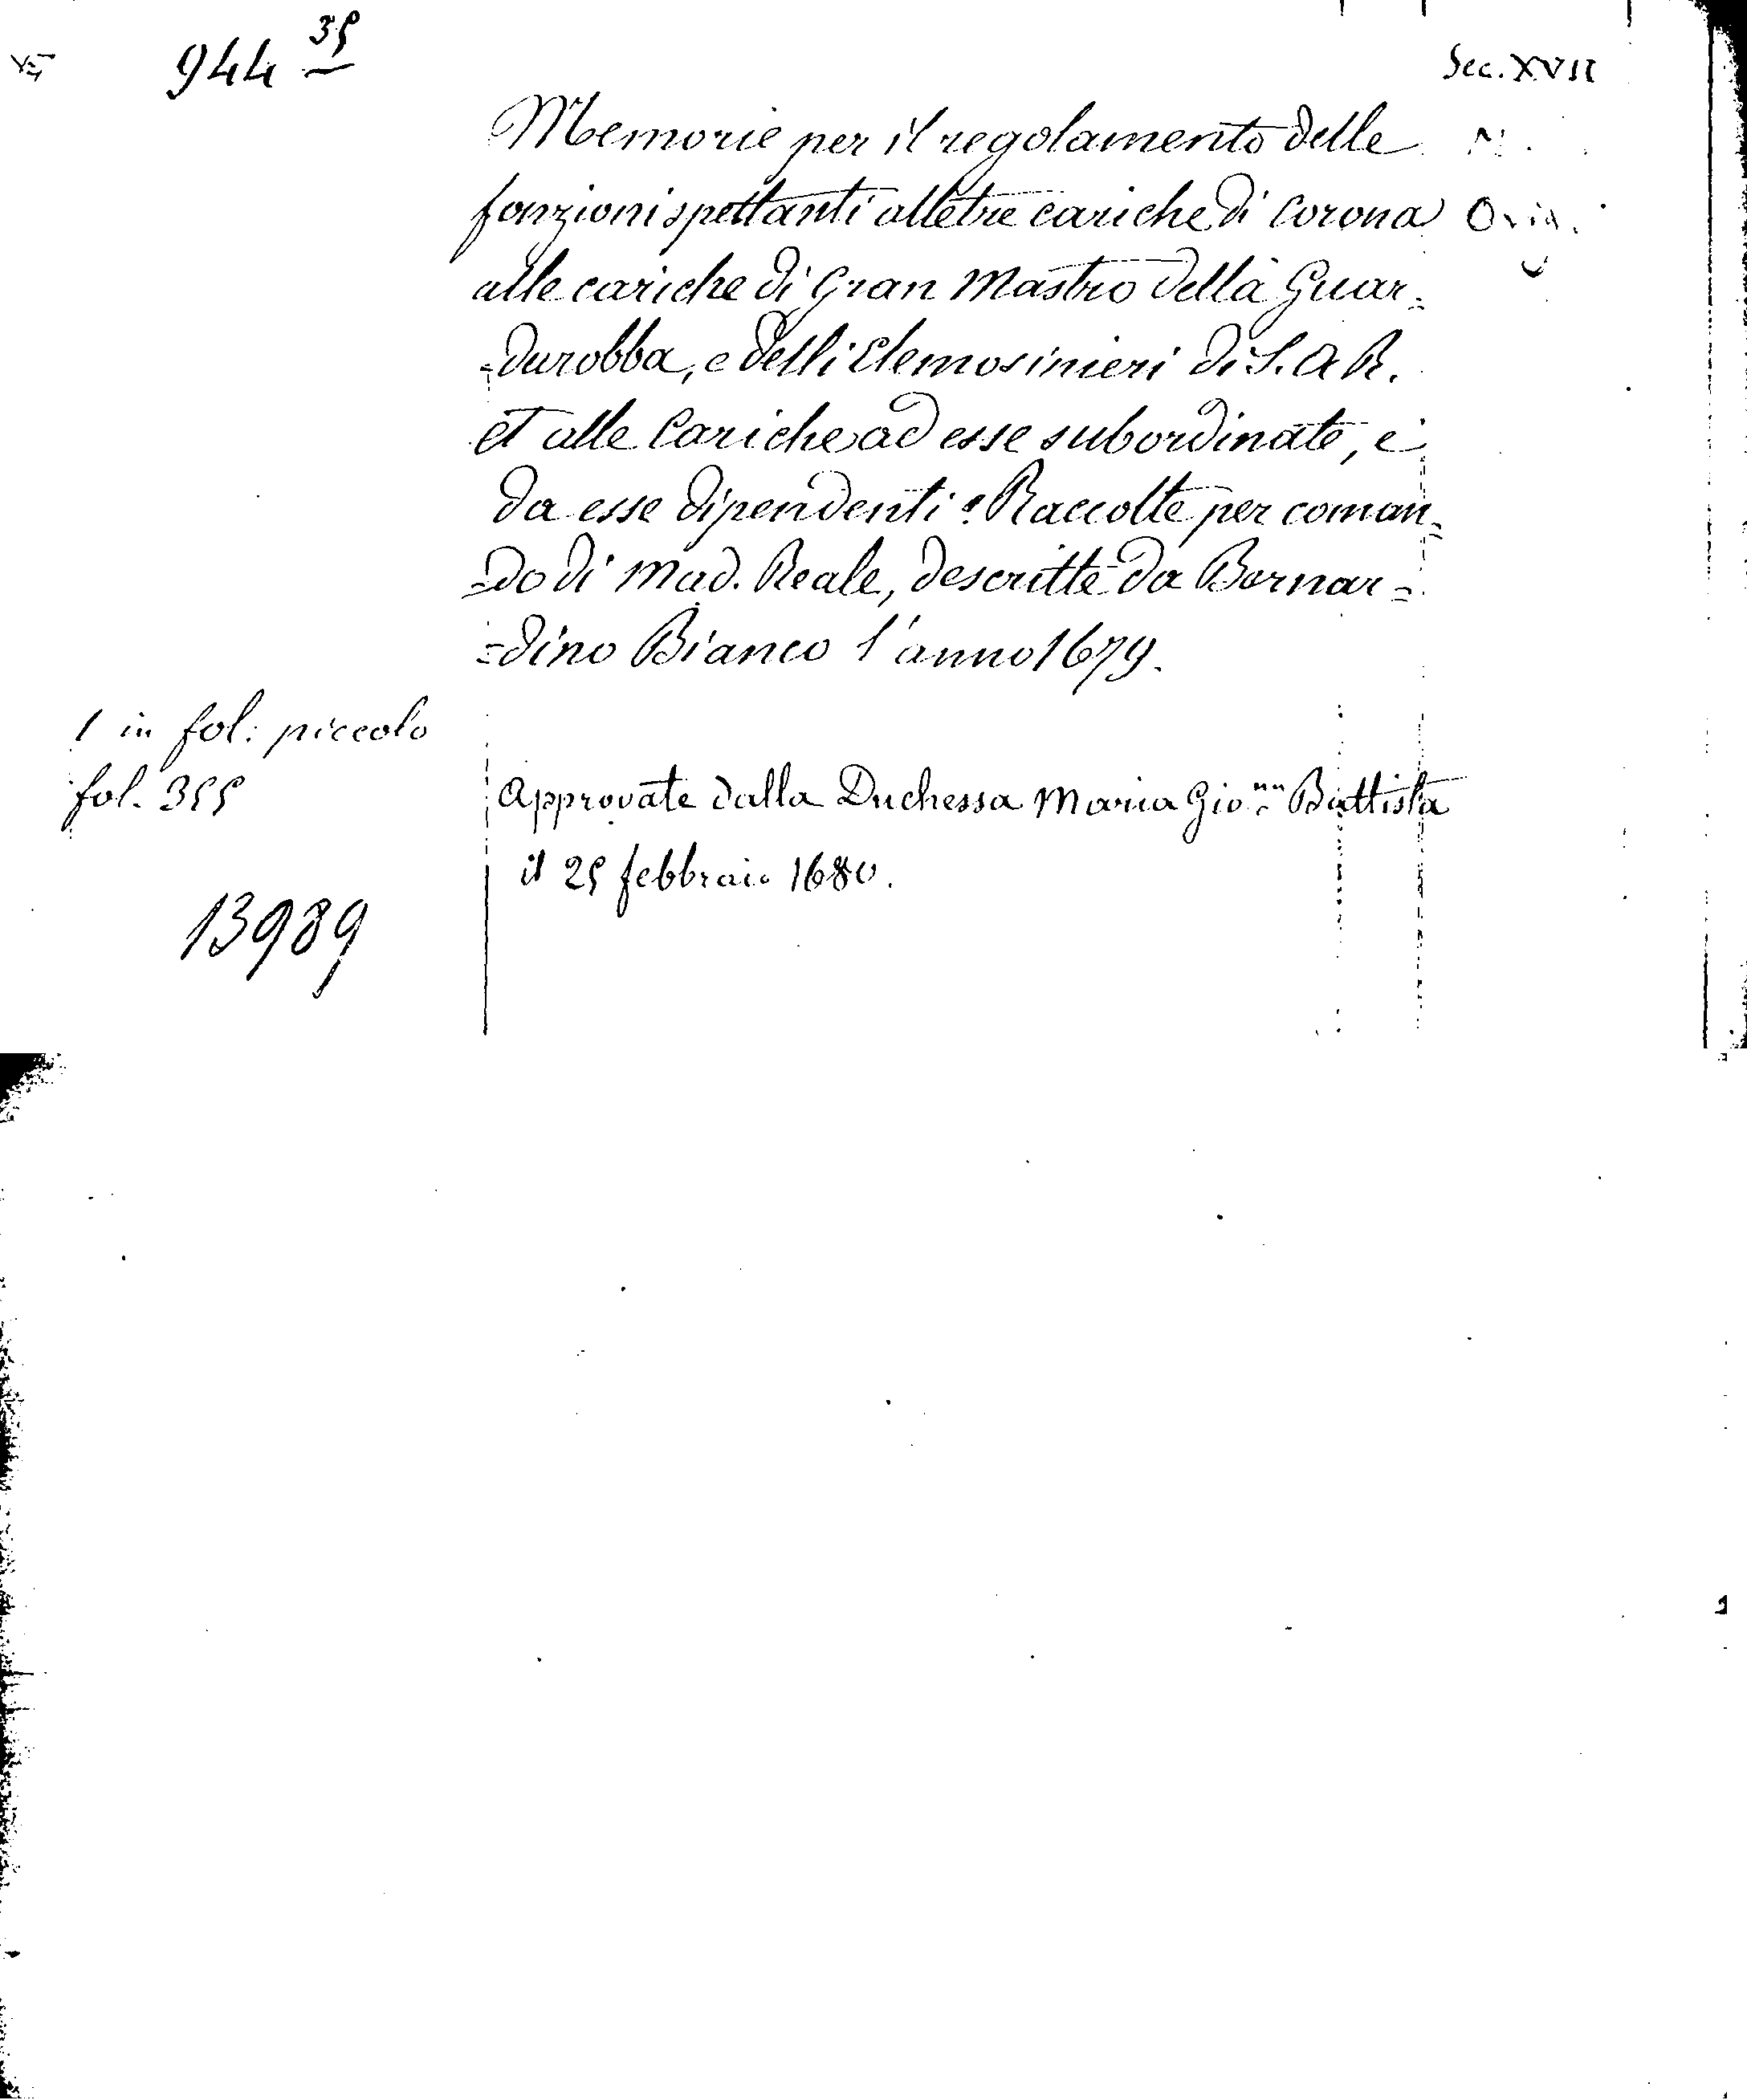 944 35
Sec. XVII
Memorie per il regolamento delle
fonzioni spettanti alle tre cariche di Corona
Orig.
alle cariche di Gran Mastro della Guar=
=durobba, e delli Elemosinieri di S. A. R.
et alle Cariche ad esse subordinate, e
da esse dipendenti: Raccolte per coman=
=do di Mad. Reale, descritte da Bernar=
=dino Bianco l'anno 1679.
1 in fol: piccolo
fol. 355
Approvate dalla Duchessa Maria Gio.nna Battista
il 25 febbraio 1680.
13989